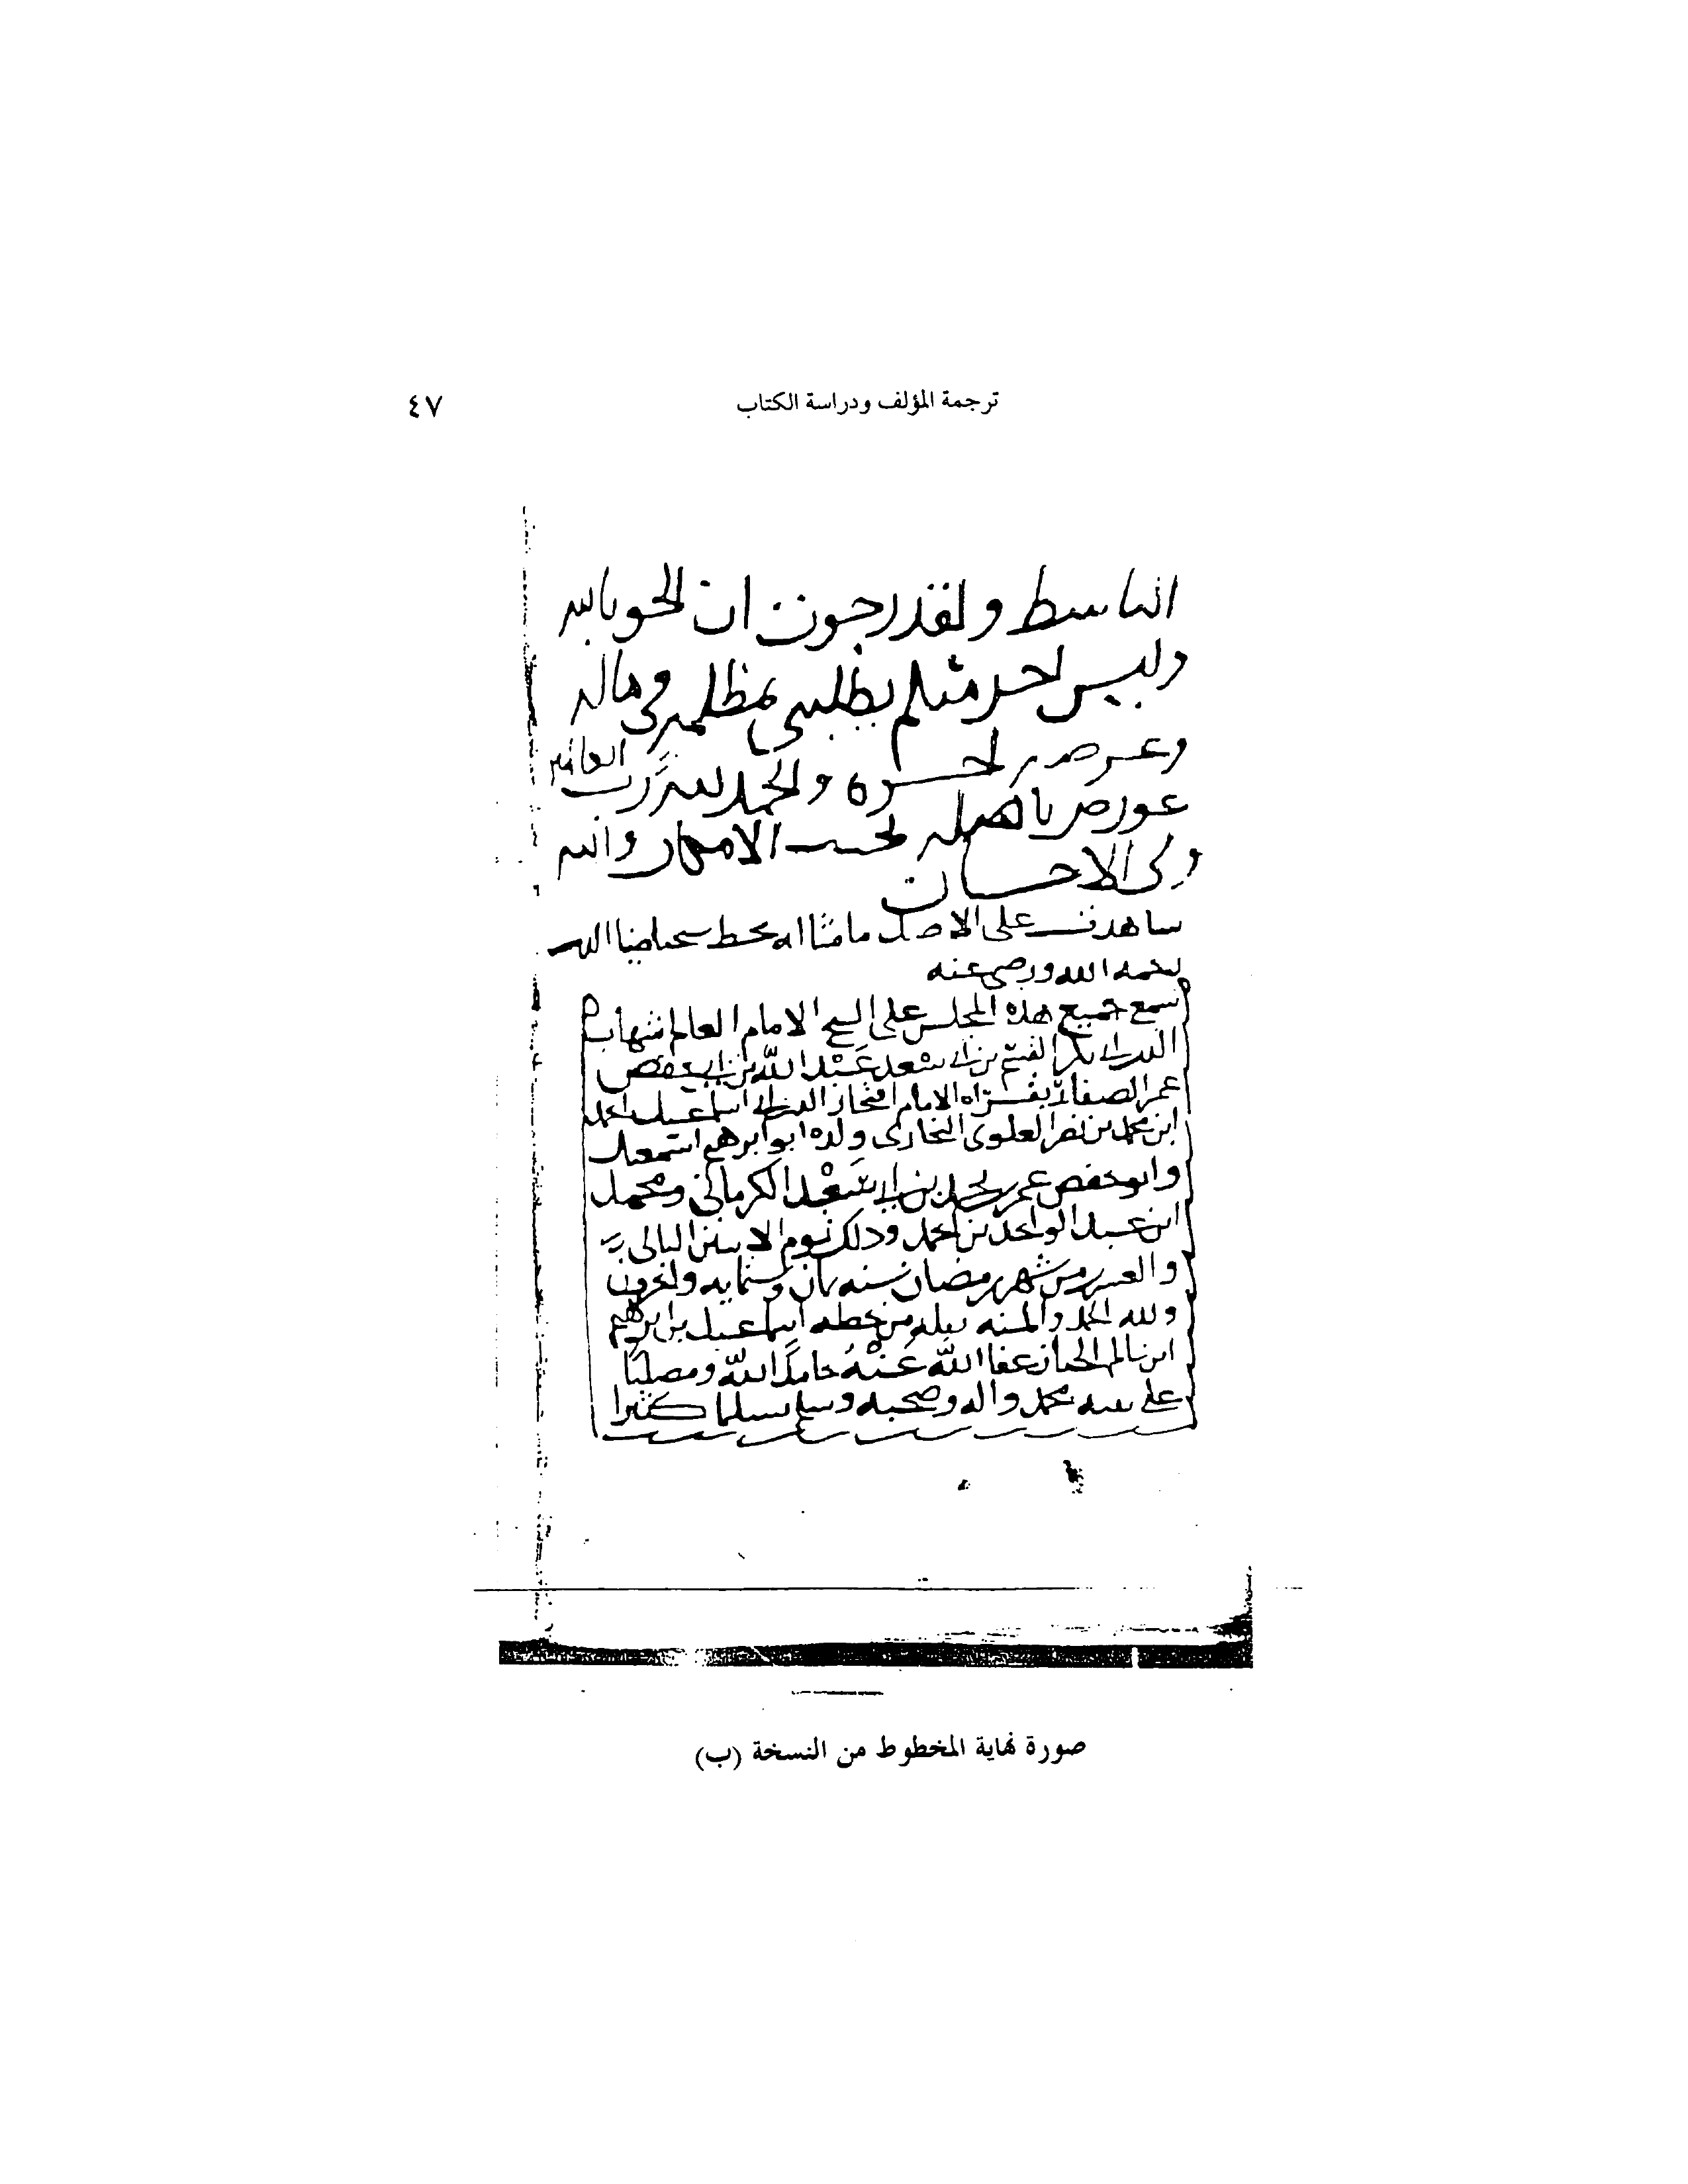 ترجمة المؤلف ودراسة الكتاب
٤٧
الباسط ولقد رجوت ان الحق بالله
وليس احد منكم يطلبني بمظلمة في مال
ولا عرض
الحمد لله رب العالمين
عورض باصله بحسب الامكان والله
ولي الاحسان
شاهدت على الاصل ما مثاله بخط ضيا الدين
رحمه الله ورضي عنه
سمع جميع هذه المجلس على الشيخ الامام العالم شهاب
الدين ابي بكر القسم بن ابي سعد عبد الله بن ابي حفص
عمر الصفار بقراه الامام افتخار الدين اسماعيل احمد
ابن محمد بن نصر العلوى البخارى ولده ابو ابرهيم اسمعيل
وابو حفص عمر بن احمد بن ابي سعد الكرماني ومحمد
ابن عبد الواحد بن احمد وذلك يوم الاثنين الثاني
والعشرين من شهر رمضان سنه ثمان وستمايه
ولله الحمد والمنه نقله من خطه اسماعيل بن ابرهيم
ابن سالم الخباز عفا الله عنه حامدا لله ومصليا
على نبيه محمد واله وصحبه وسلم تسليما كثيرا
صورة نهاية المخطوط من النسخة (ب)